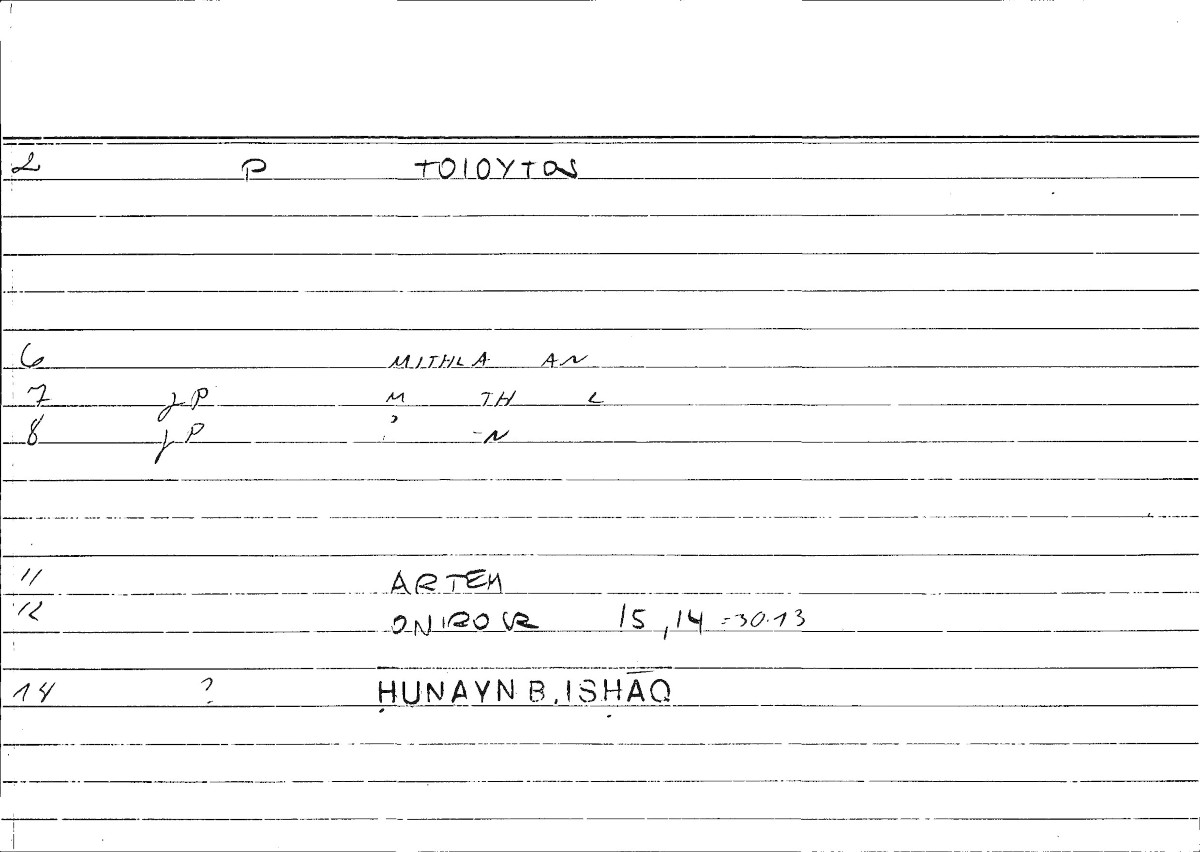 2 P ΤΟΙΟΥΤΟΣ
6 MITHLA AN
7 JP M TH L
8 JP ʾ -N
11 ARTEM
12 ONIROCR 15,14 = 30.13
14 ? ḤUNAYN B. ISḤĀQ